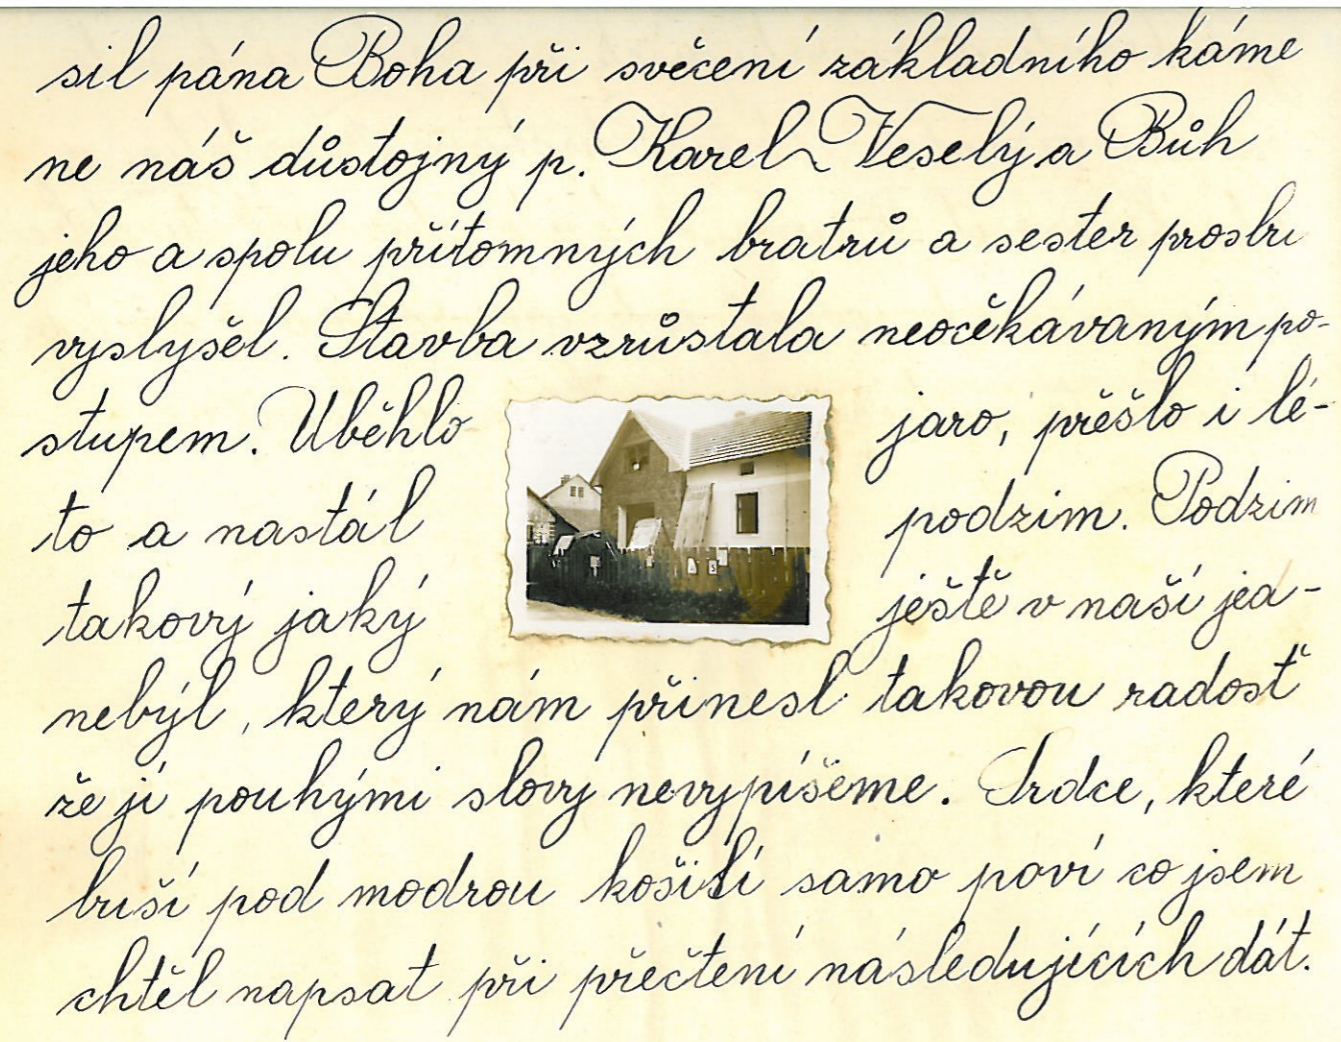 sil pána Boha při svěcení základního káme
ne náš důstojný p. Karel Veselý a Bůh
jeho a spolu přítomných bratrů a sester prosbu
vyslyšel. Stavba vzrůstala neočekávaným po-
stupem. Uběhlo jaro, přešlo i lé-
to a nastal podzim. Podzim
takový jaký ještě v naší jed-
nebýl, který nám přinesl takovou radosť
že ji pouhými slovy nevypíšeme. Srdce, které
buší pod modrou košilí samo poví co jsem
chtěl napsat při přečtení následujících dát.